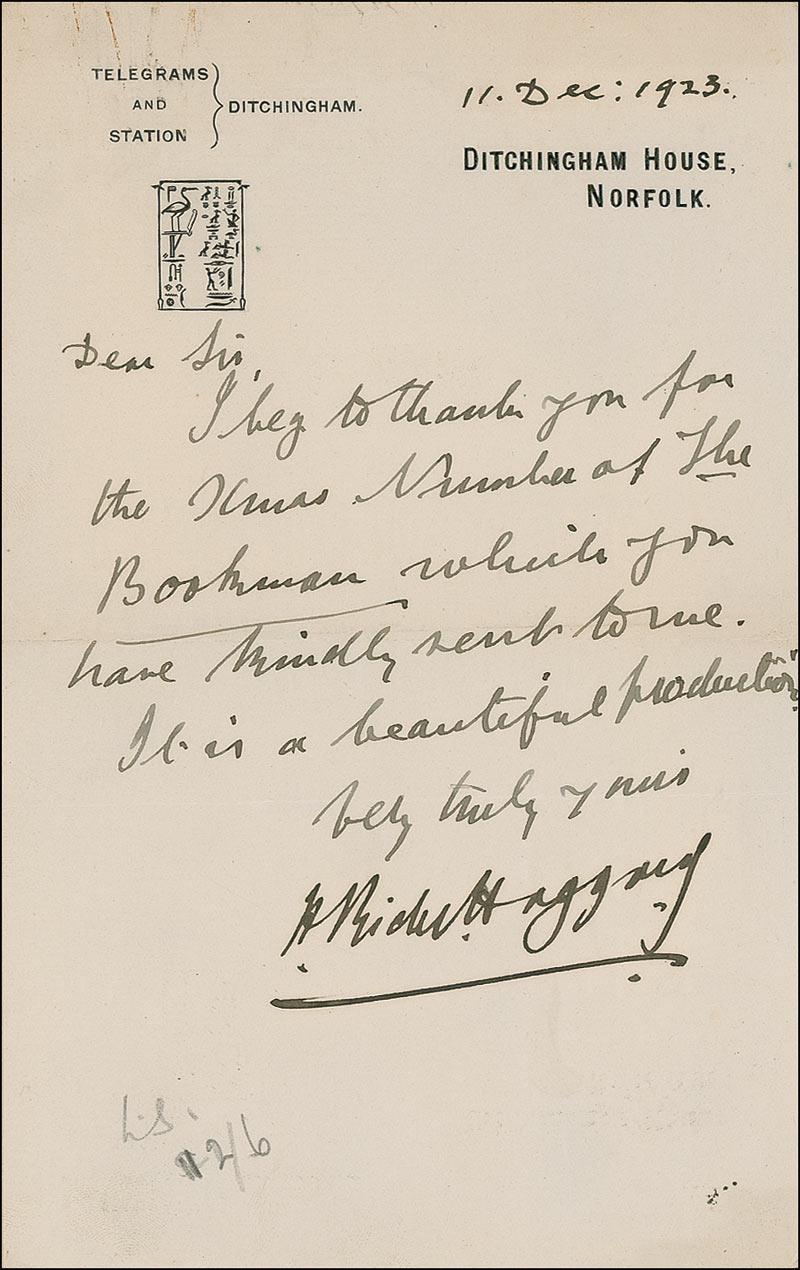 TELEGRAMS
AND
STATION
DITCHINGHAM.
11. Dec: 1923.
DITCHINGHAM HOUSE,
NORFOLK.
Dear Sir,
I beg to thank you for
the Xmas Number of The
Bookman which you
have kindly sent to me.
It is a beautiful production.
Very truly yours
H Rider Haggard
2/6